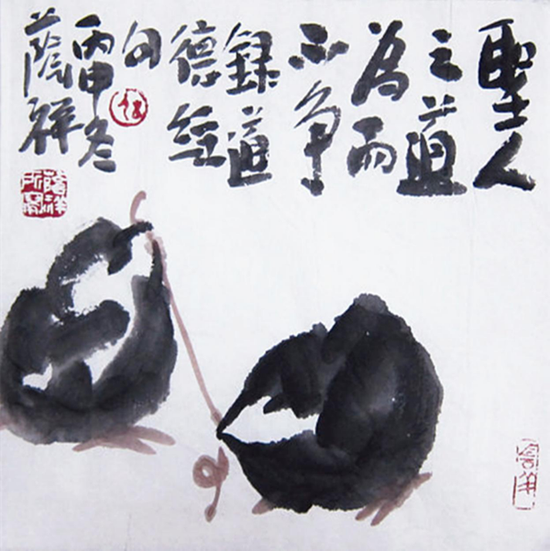 聖人
之道
為而
不争
録道
德经
句
丙申冬
蔭祥